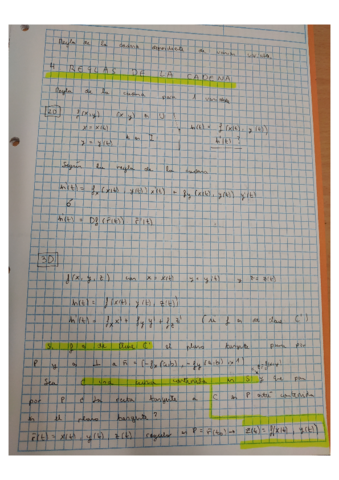 Regla de la cadena dependiente de varias variables
4 REGLAS DE LA CADENA
Regla de la cadena para 2 variables
2D f(x,y) (x,y) ∈ U
x = x(t)
y = y(t) t ∈ I
h(t) = f(x(t), y(t))
h'(t)
Según la regla de la cadena
h'(t) = fx(x(t), y(t)) x'(t) + fy(x(t), y(t)) y'(t)
ó
h'(t) = Df(r(t)) r'(t)
3D
f(x, y, z) con x = x(t) y = y(t) y z = z(t)
h(t) = f(x(t), y(t), z(t))
h'(t) = fx x' + fy y' + fz z' (Si f es de clase C¹)
Si f es de clase C¹ el plano tangente pasa por
P y es ⊥ a n = (-fx(a,b), -fy(a,b), 1)
Sea C una curva contenida en S y que pasa
por P ¿ la recta tangente a C en P está contenida
en el plano tangente?
r(t) = x(t), y(t), z(t) regular P = r(t0) z(t) = f(x(t), y(t))